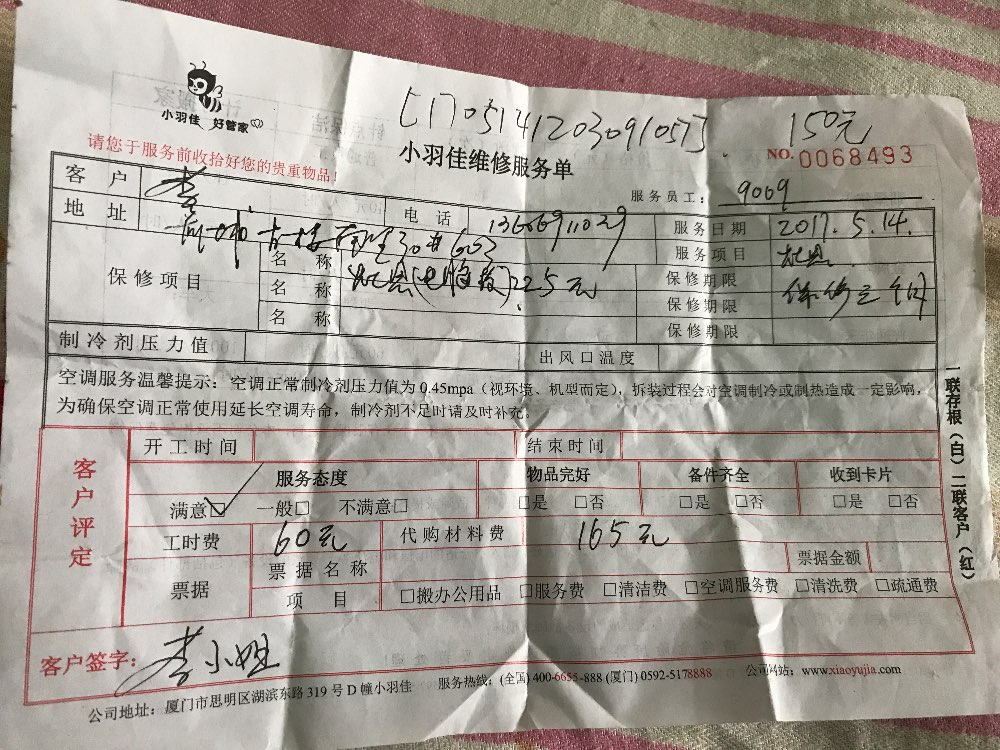 小羽佳 好管家
[170514120309105万] 150元
请您于服务前收拾好您的贵重物品!
小羽佳维修服务单
NO. 0068493
服务员工: 9009
客户 李 电话 13666911029 服务日期 2017.5.14.
地址 30 603 服务项目
保修项目 名称 225元 保修期限 保修三个月
名称 保修期限
名称 保修期限
制冷剂压力值 出风口温度
空调服务温馨提示:空调正常制冷剂压力值为0.45mpa(视环境、机型而定),拆装过程会对空调制冷或制热造成一定影响,
为确保空调正常使用延长空调寿命,制冷剂不足时请及时补充。
客户评定
开工时间 结束时间
服务态度 物品完好 备件齐全 收到卡片
满意☑ 一般□ 不满意□ □是 □否 □是 □否 □是 □否
工时费 60元 代购材料费 165元
票据 票据名称 票据金额
项目 □搬办公用品 □服务费 □清洁费 □空调服务费 □清洗费 □疏通费
客户签字: 李小姐
公司地址:厦门市思明区湖滨东路319号D幢小羽佳 服务热线:(全国)400-6655-888 (厦门)0592-5178888 公司网站:www.xiaoyujia.com
一联存根(白)二联客户(红)